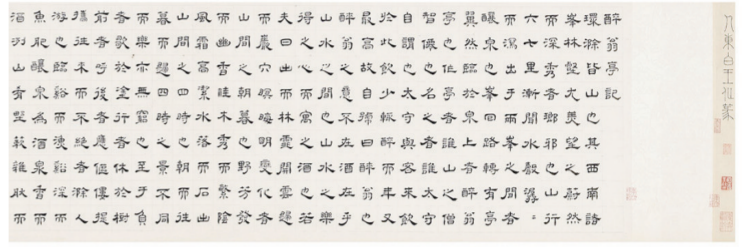 醉翁亭記
環滁皆山也其西南諸
峯林壑尤美望之蔚然
而深秀者琅邪也山行
六七里漸聞水聲潺〻
而瀉出于兩峯之間者
釀泉也峯回路轉有亭
翼然臨於泉上者醉翁
亭也作亭者誰山之僧
智僊也名之者誰太守
自謂也太守與客來飲
於此飲少輒醉而年又
最高故自號曰醉翁也
醉翁之意不在酒在乎
山水之間也山水之樂
得之心而寓之酒也若
夫日出而林霏開雲歸
而巖穴暝晦明變化者
山間之朝暮也野芳發
而幽香佳木秀而繁陰
風霜高潔水落而石出
山間之四時也朝而往
暮而歸四時之景不同
而樂亦無窮也至于負
者歌於塗行者休於樹
前者呼後者應傴僂提
攜往來而不絕者滁人
游也臨谿而漁谿深而
魚肥釀泉為酒泉香而
酒冽山肴野蔌雜然而